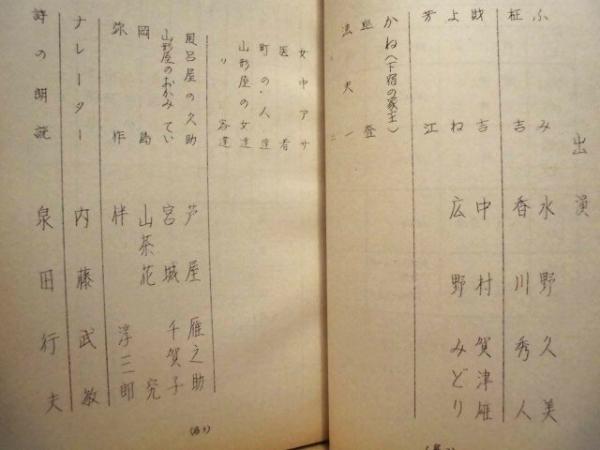 出演
ふみ 水野久美
柾吉 香川秀人
財吉 中村賀津雄
よね 広野みどり
芳江
かね(下宿の家主)
照登
法夫一
女中アサ
医者
町の人達
山形屋の女達
〃 客達
風呂屋の久助 芦屋雁之助
山形屋のおかみてい 宮城千賀子
岡島 山茶花究
弥作 伴淳三郎
ナレーター 内藤武敏
詩の朗読 泉田行夫